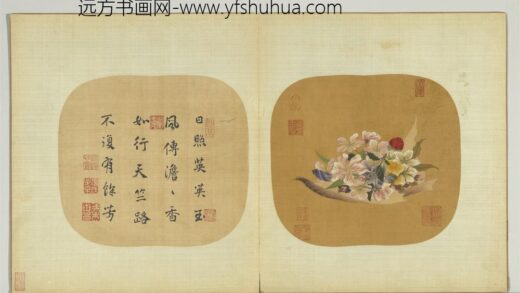 远方书画网- www.yfshuhua.com
日照英英玉
風傳澹〻香
如行天竺路
不復有餘芳